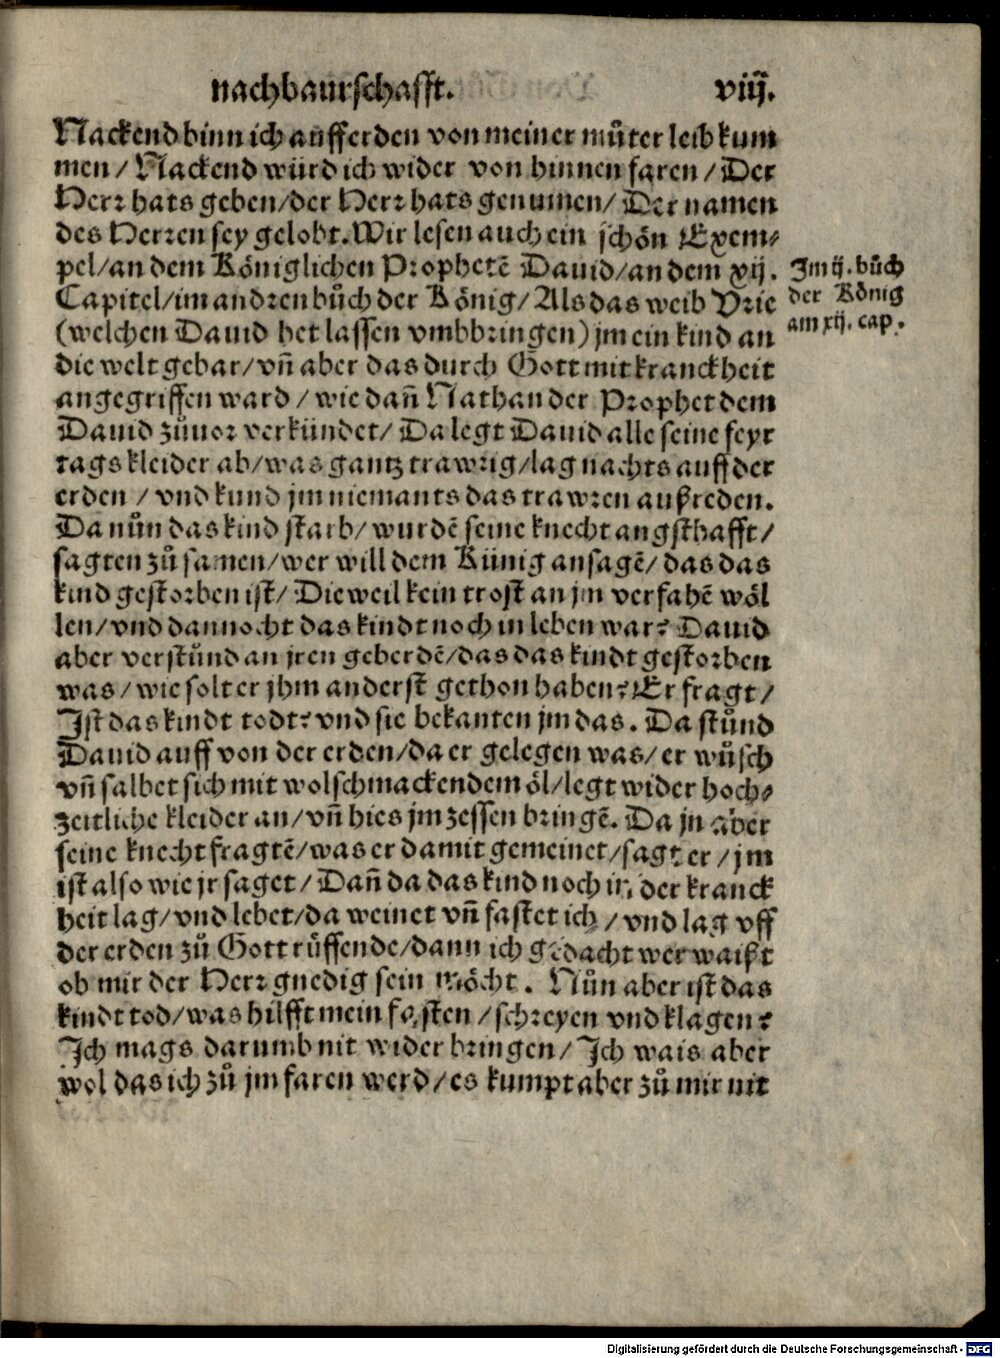 nachbaurschafft. viij.
Nackend binn ich auff erden von meiner můter leib kum
men / Nackend würd ich wider von hinnen faren / Der
Herr hats geben / der Herr hats genumen / Der namen
des Herren sey gelobt. Wir lesen auch ein schön Exem⸗
pel / an dem Königlichen Prophetẽ Dauid / an dem xij.
Im ij. bůch
Capitel / im andren bůch der König / Als das weib Vrie
der König
(welchen Dauid het lassen vmbbringen) jm ein kind an
am xij. cap.
die welt gebar / vñ aber das durch Gott mit kranckheit
angegriffen ward / wie dañ Nathan der Prophet dem
Dauid zůuor verkündet / Da legt Dauid alle seine feyr
tags kleider ab / was gantz trawrig / lag nachts auff der
erden / vnd kund jm niemants das trawren außreden.
Da nůn das kind starb / wurdẽ seine knecht angsthafft /
sagten zů samen / wer will dem Künig ansagẽ / das das
kind gestorben ist / Die weil kein trost an jm verfahẽ wöl
len / vnd dannocht das kindt noch in leben war? Dauid
aber verstůnd an jren geberdẽ / das das kindt gestorben
was / wie solt er jhm anderst gethon haben? Er fragt /
Ist das kindt todt? vnd sie bekanten jm das. Da stůnd
Dauid auff von der erden / da er gelegen was / er wůsch
vñ salbet sich mit wolschmackendem öl / legt wider hoch⸗
zeitliche kleider an / vñ hies jm zessen bringẽ. Da jn aber
seine knecht fragtẽ / was er damit gemeinet / sagt er / jm
ist also wie jr saget / Dañ da das kind noch in der kranck
heit lag / vnd lebet / da weinet vñ fastet ich / vnd lag vff
der erden zů Gott růffende / dann ich gedacht wer waißt
ob mir der Herr gnedig sein möcht. Nůn aber ist das
kindt tod / was hilfft mein fasten / schreyen vnd klagen?
Ich mags darumb nit wider bringen / Ich wais aber
wol das ich zů jm faren werd / es kumpt aber zů mir nit
Digitalisierung gefördert durch die Deutsche Forschungsgemeinschaft - DFG